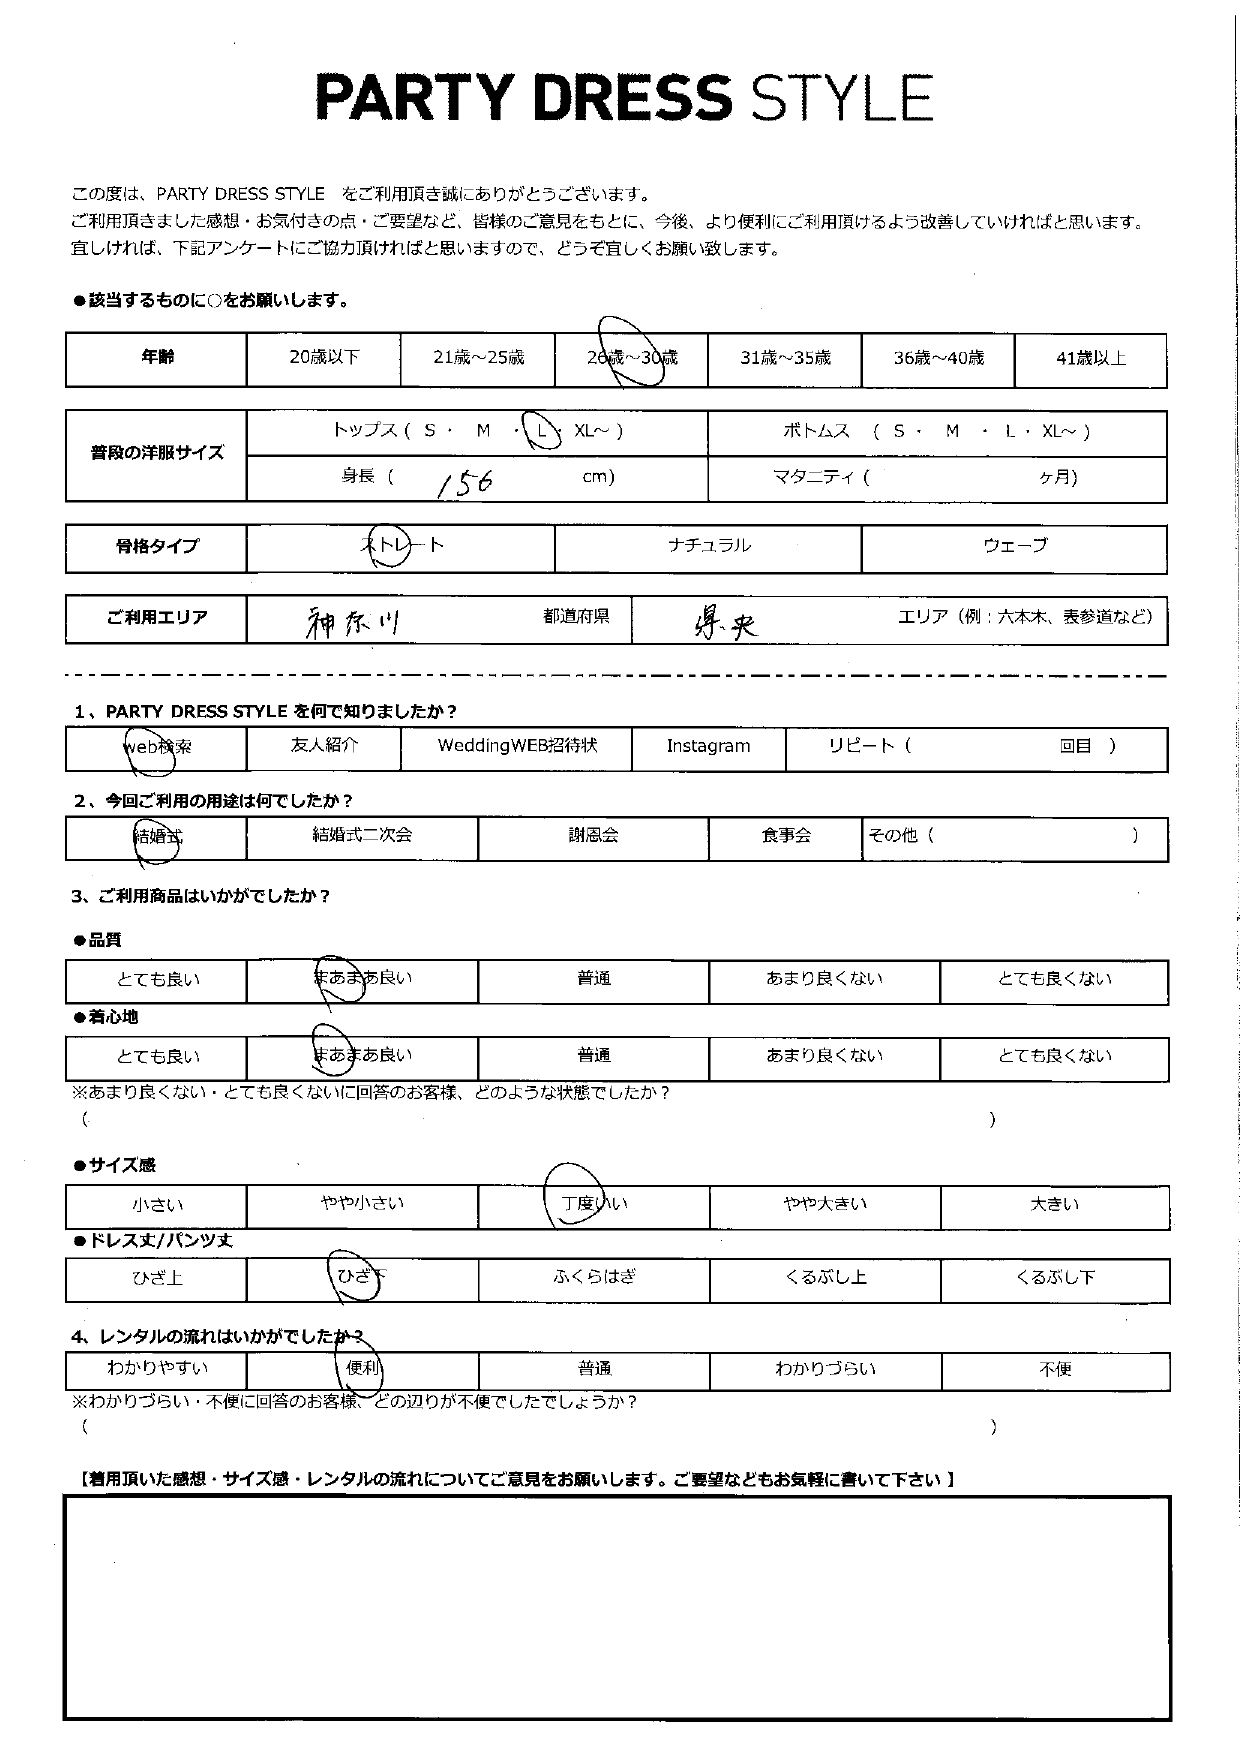 PARTY DRESS STYLE
この度は、PARTY DRESS STYLE をご利用頂き誠にありがとうございます。
ご利用頂きました感想・お気付きの点・ご要望など、皆様のご意見をもとに、今後、より便利にご利用頂けるよう改善していければと思います。
宜しければ、下記アンケートにご協力頂ければと思いますので、どうぞ宜しくお願い致します。
●該当するものに○をお願いします。
年齢 20歳以下 21歳～25歳 26歳～30歳 31歳～35歳 36歳～40歳 41歳以上
普段の洋服サイズ トップス ( S ・ M ・ L ・ XL～ ) ボトムス ( S ・ M ・ L ・ XL～ )
身長 ( 156 cm) マタニティ ( ヶ月)
骨格タイプ ストレート ナチュラル ウェーブ
ご利用エリア 神奈川 都道府県 県央 エリア（例：六本木、表参道など）
1、PARTY DRESS STYLE を何で知りましたか？
web検索 友人紹介 WeddingWEB招待状 Instagram リピート ( 回目 )
2、今回ご利用の用途は何でしたか？
結婚式 結婚式二次会 謝恩会 食事会 その他 ( )
3、ご利用商品はいかがでしたか？
●品質
とても良い まあまあ良い 普通 あまり良くない とても良くない
●着心地
とても良い まあまあ良い 普通 あまり良くない とても良くない
※あまり良くない・とても良くないに回答のお客様、どのような状態でしたか？
( )
●サイズ感
小さい やや小さい 丁度いい やや大きい 大きい
●ドレス丈/パンツ丈
ひざ上 ひざ下 ふくらはぎ くるぶし上 くるぶし下
4、レンタルの流れはいかがでしたか？
わかりやすい 便利 普通 わかりづらい 不便
※わかりづらい・不便に回答のお客様、どの辺りが不便でしたでしょうか？
( )
【着用頂いた感想・サイズ感・レンタルの流れについてご意見をお願いします。ご要望などもお気軽に書いて下さい 】